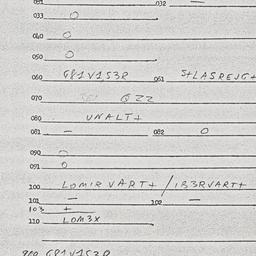 031 032 —
033 O
040 O
050 O
060 G81V1S3R 061 S+LASREJG+
070 QZZ
080 UNALT+
081 — 082 O
090 O
091 O
100 LOMIRVART+ / 1B3RVART+
101 — 102 —
103 +
110 LOM3X
900 G81V1S3R